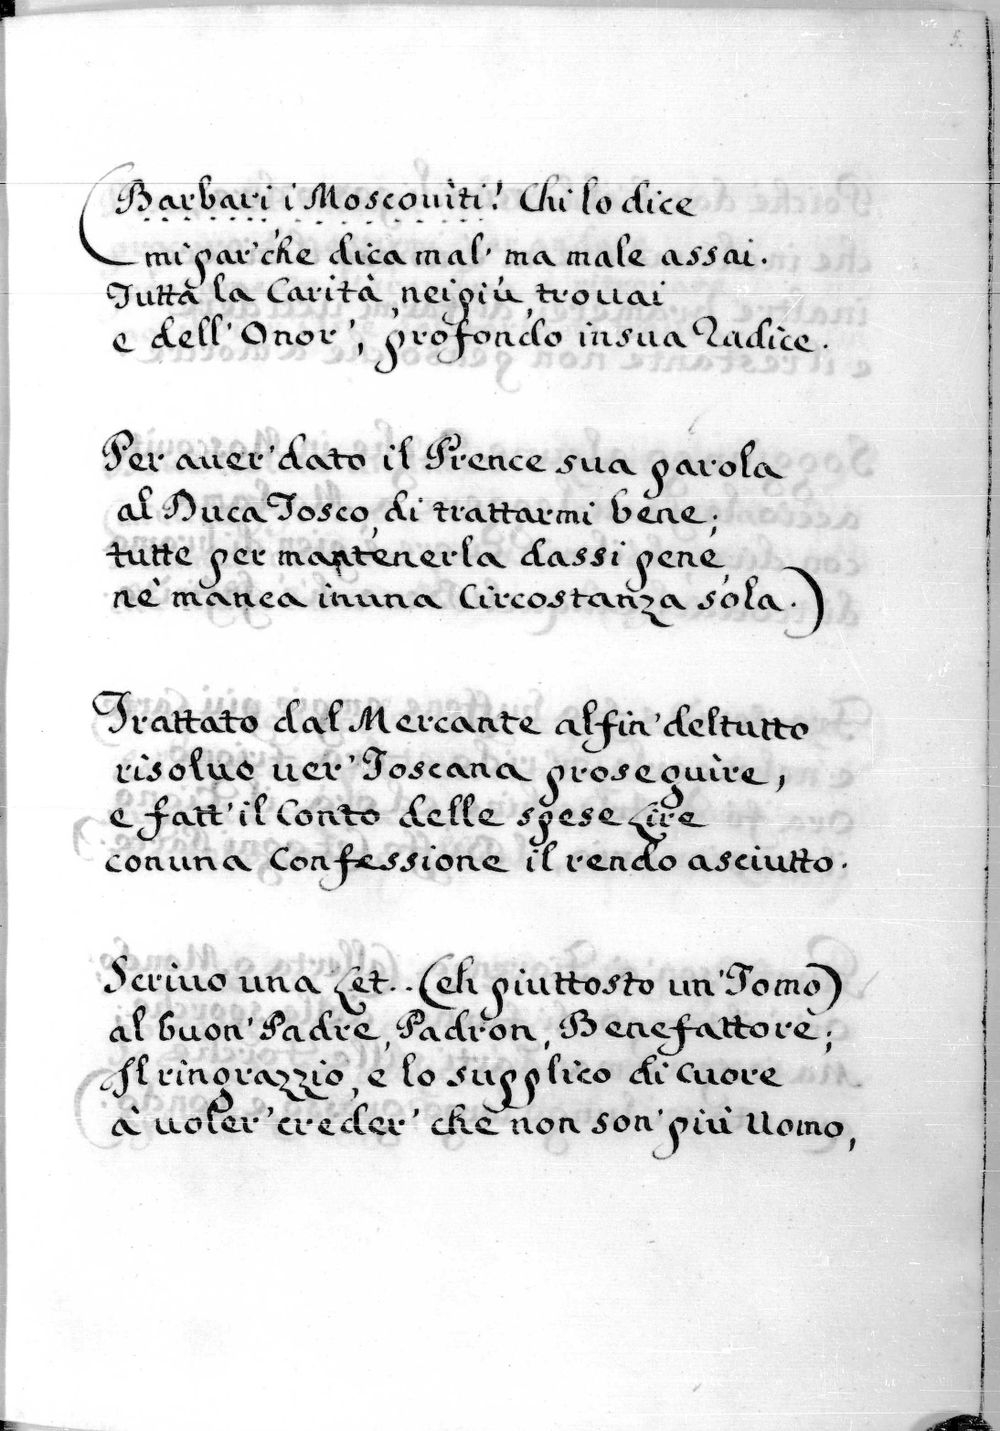 5.
(Barbari i Moscoviti! Chi lo dice
mi par' che dica mal' ma male assai.
Tutta la Carità nei più trovai
e dell' Onor', profondo in sua Radice.
Per auer' dato il Prence sua parola
al Duca Tosco, di trattarmi bene;
tutte per mantenerla dassi pene,
nè manca in una Circostanza sola.)
Trattato dal Mercante alfin' del tutto
risoluo uer' Toscana proseguire,
e fatt' il Conto delle spese Lire
con una Confessione il rendo asciutto.
Scriuo una Let.. (eh piuttosto un' Tomo)
al buon' Padre, Padron, Benefattore;
Il ringrazzio, e lo supplico di Cuore
à uoler' creder' che non son' più Uomo,